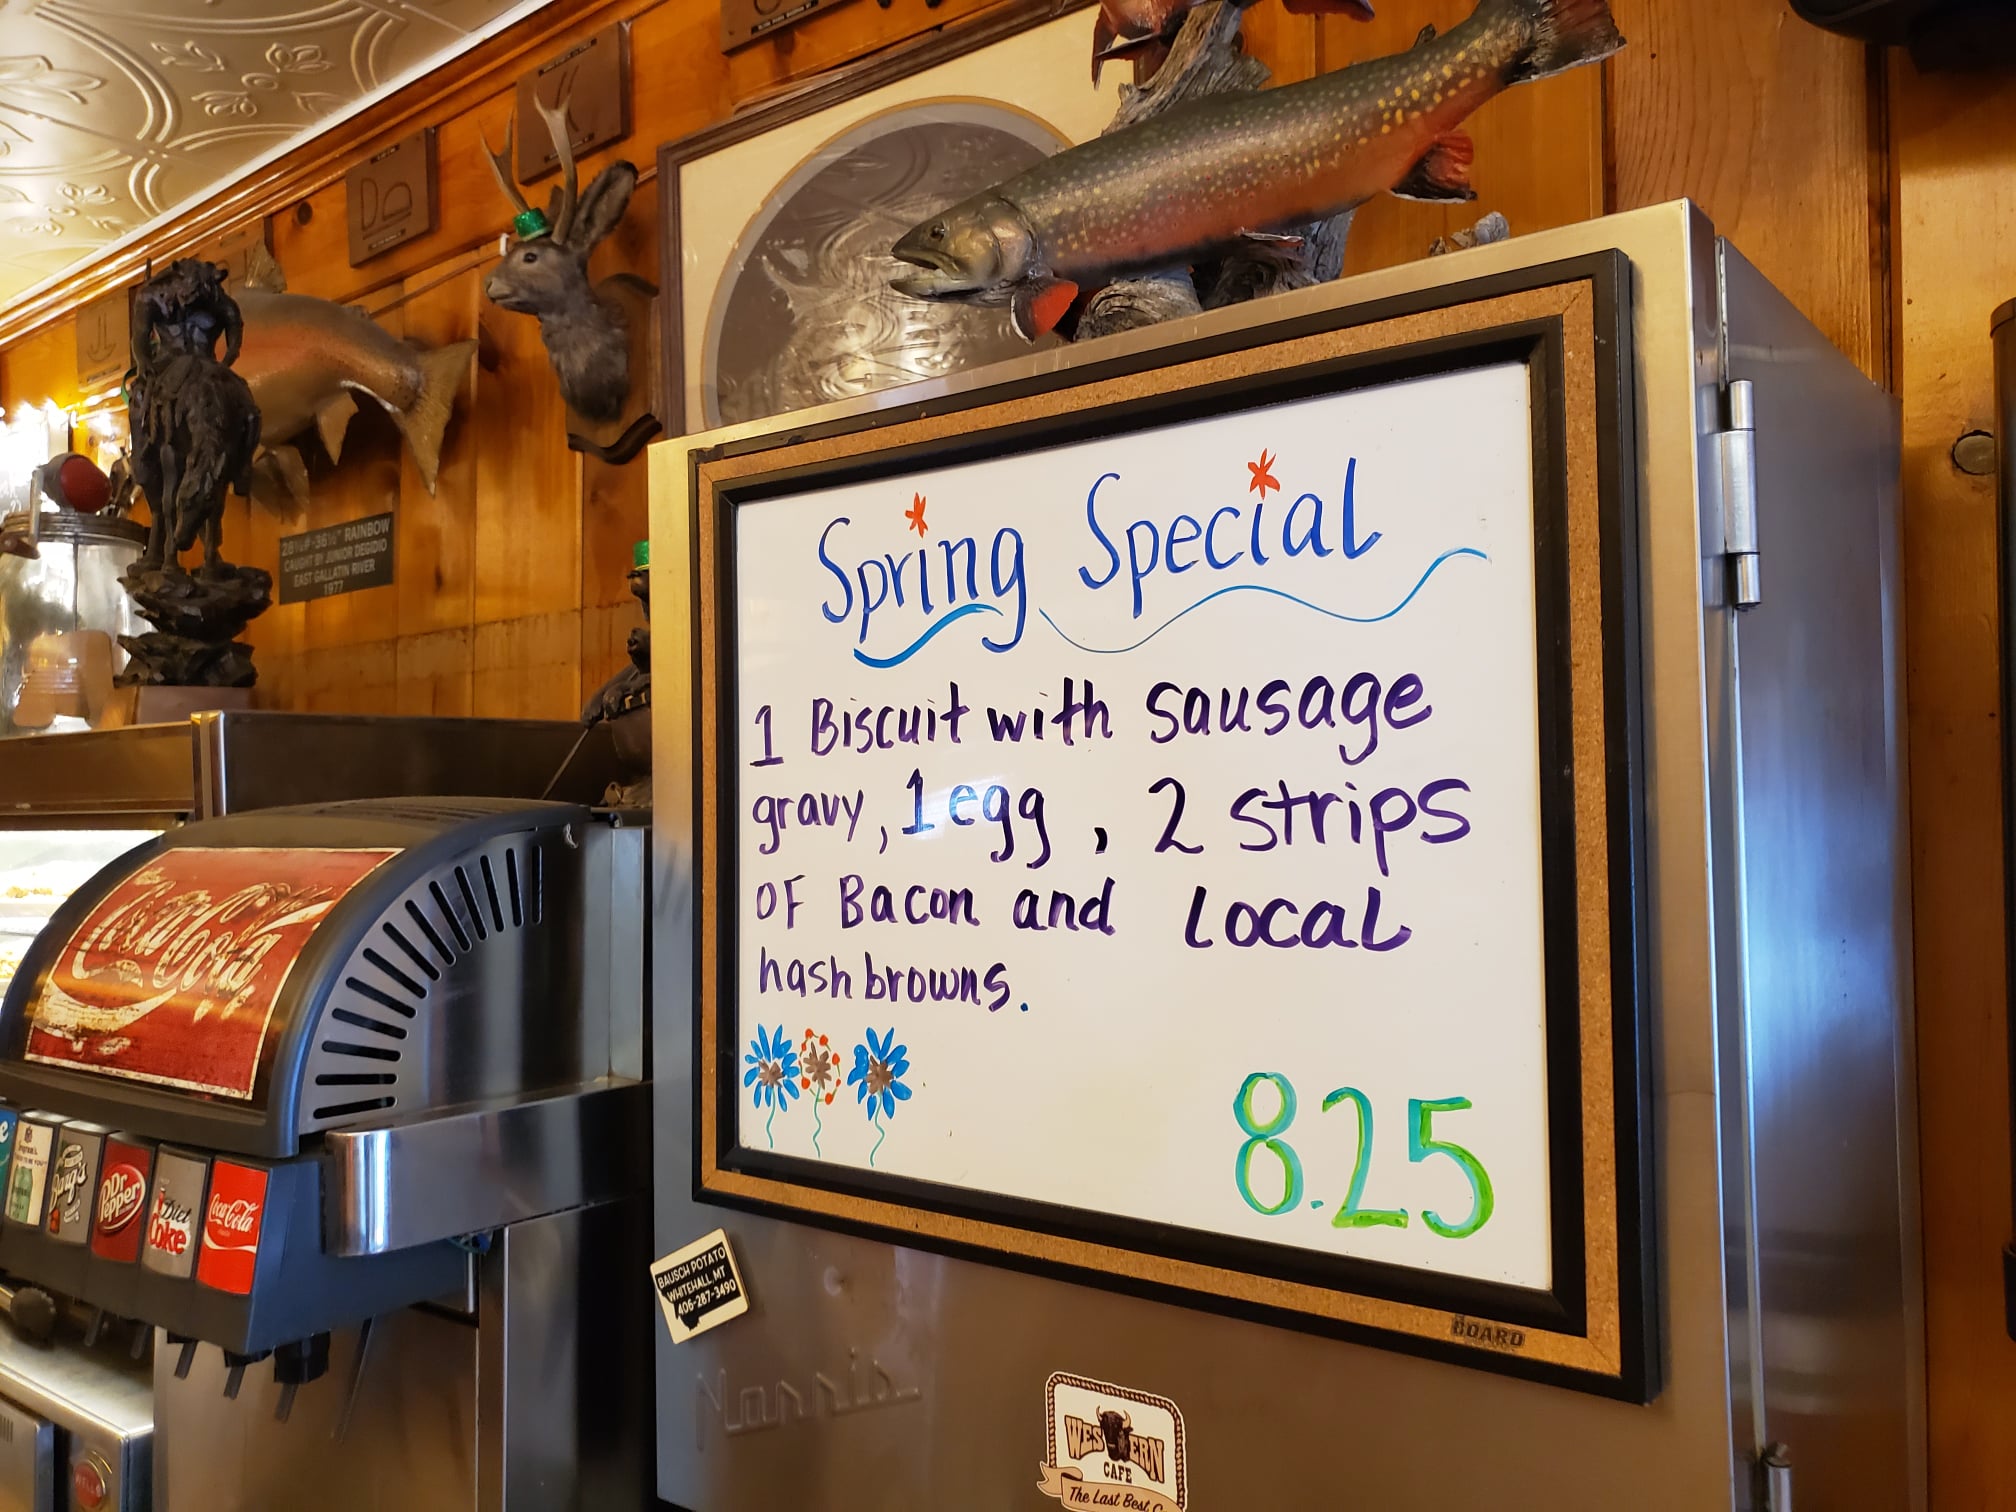 Spring Special
1 Biscuit with sausage
gravy, 1 egg, 2 strips
OF Bacon and Local
hash browns.
8.25
RAINBOW
CAUGHT BY JUNIOR DEGIDIO
EAST GALLATIN RIVER
1977
Coca-Cola
Barq's
Dr Pepper
Diet Coke
Coca-Cola
BAUSCH POTATO
WHITEHALL, MT
406-287-3490
Norris
BOARD
WESTERN
CAFE
The Last Best